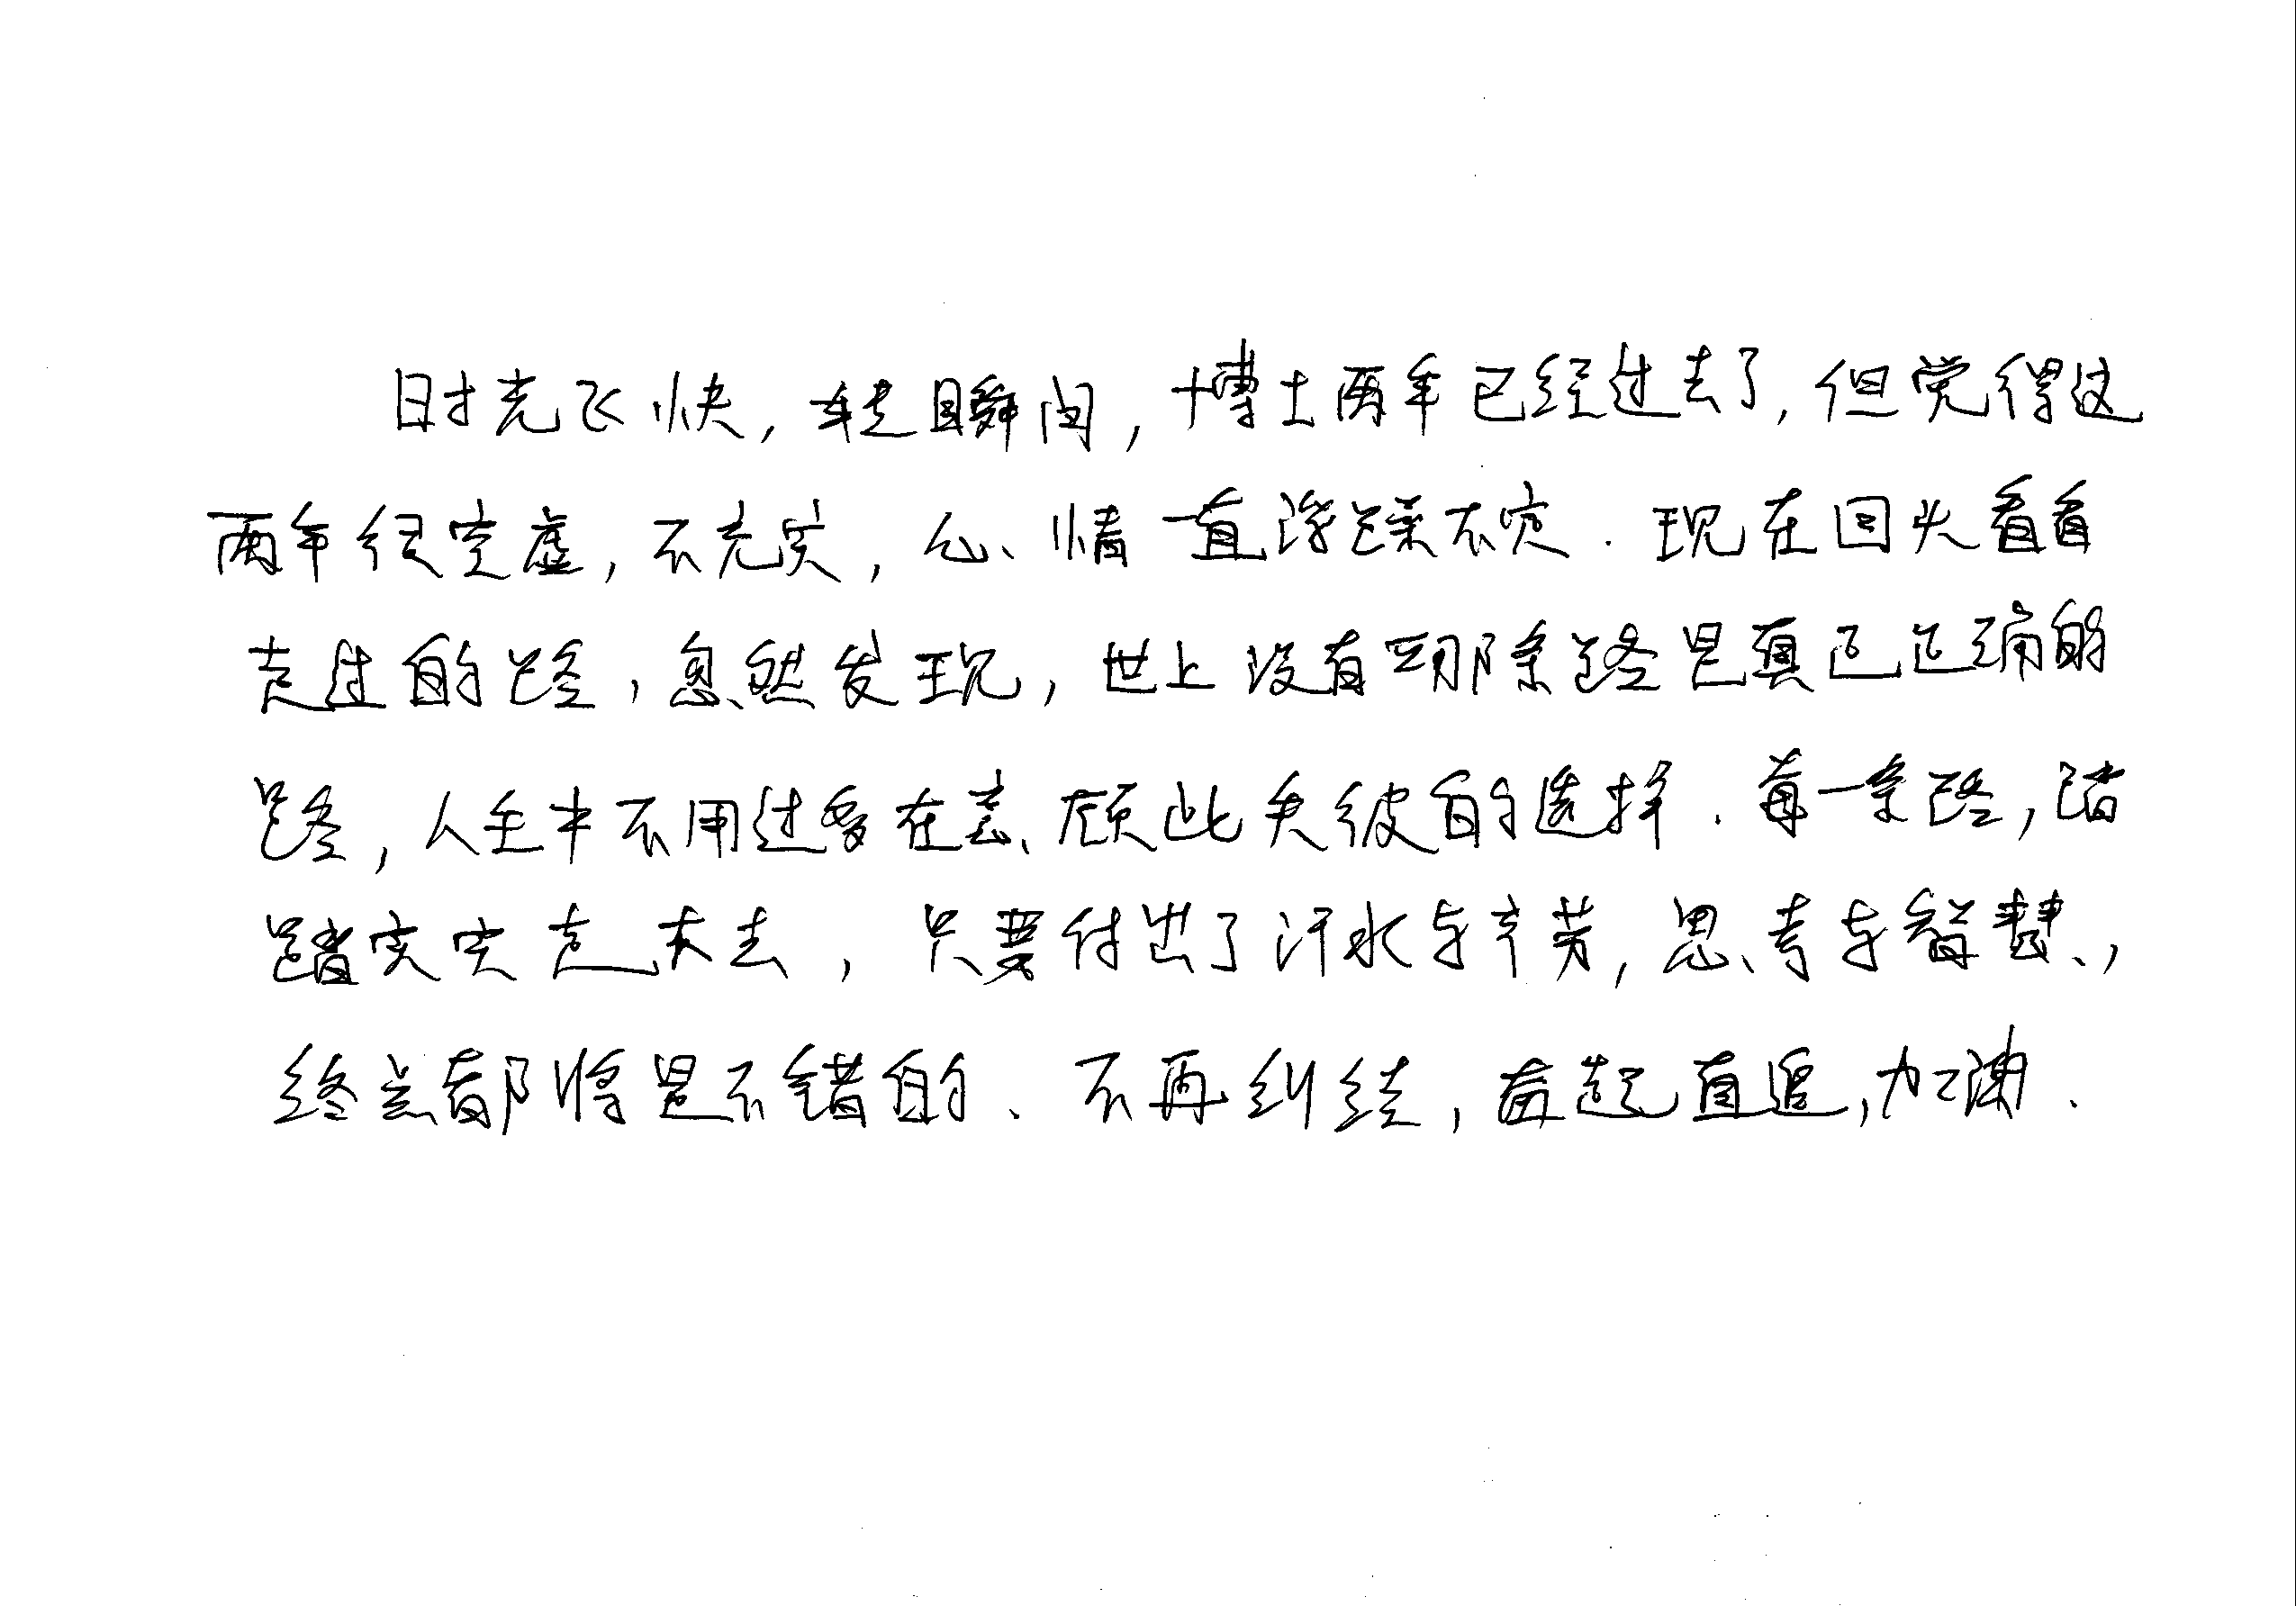 时光飞快，转瞬间，博士两年已经过去了，但觉得这
两年很空虚，不充实，心情一直浮躁不定．现在回头看看
走过的路，忽然发现，世上没有哪条路是真正正确的
路，人生中不用过多在意、顾此失彼的选择．每一条路，踏
踏实实走下去，只要付出了汗水与辛劳，思考与智慧，
终点都将是不错的、不再纠结，奋起直追，加油．